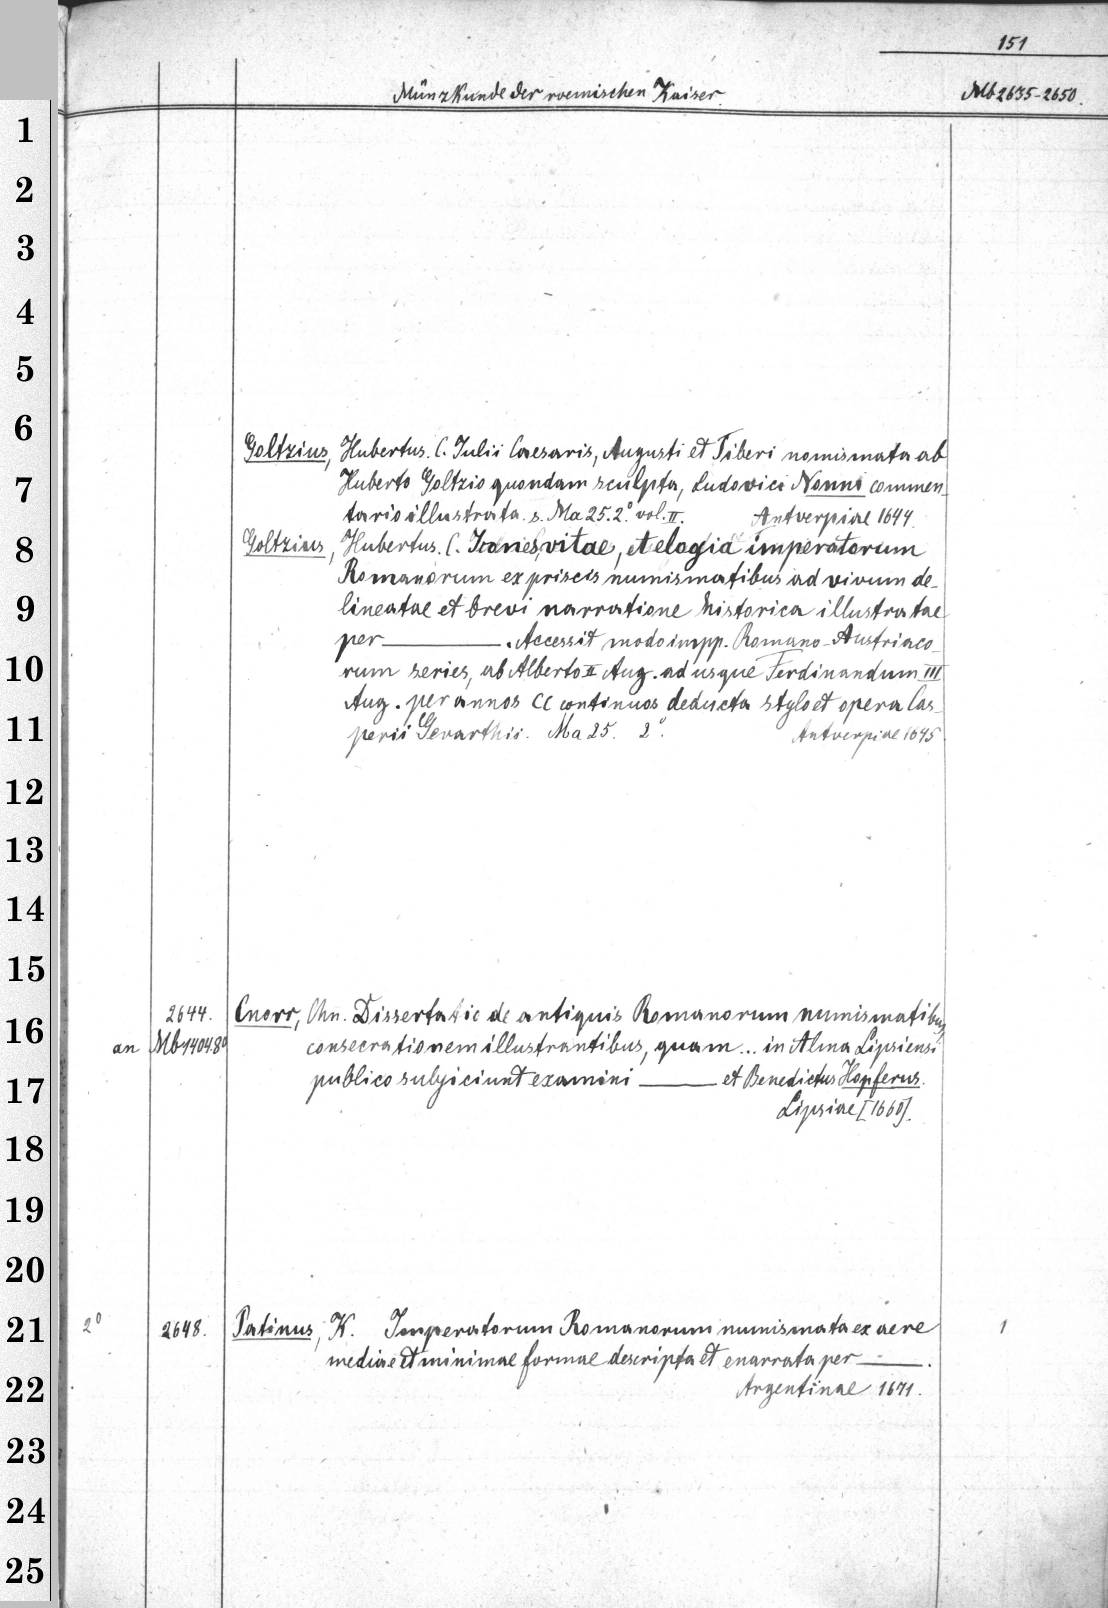 151
Münzkunde der roemischen Kaiser.
Mb 2635-2650.
1
2
3
4
5
6
Goltzius, Hubertus. C. Iulii Caesaris, Augusti et Tiberi nomismata ab
7
Huberto Goltzio quondam sculpta, Ludovici Nonni commen-
tario illustrata. s. Ma 25. 2° vol. II. Antverpiae 1644.
8
Goltzius, Hubertus. C. Icones, vitae, et elogia imperatorum
Romanorum ex priscis numismatibus ad vivum de-
9
lineatae et brevi narratione historica illustratae
per ———. Accessit modo impp. Romano-Austriaco-
10
rum series, ab Alberto II Aug. ad usque Ferdinandum III
Aug. per annos CC continuos deducta stylo et opera Cas-
11
perii Gevarthii. Ma 25. 2°. Antverpiae 1645.
12
13
14
15
2644. Cnorr, Chn. Dissertatio de antiquis Romanorum numismatibus,
16
an Mb 1404.8° consecrationem illustrantibus, quam ... in Alma Lipsiensi
17
publico subjiciunt examini ——— et Benedictus Hopferus.
Lipsiae [1660].
18
19
20
21
2° 2648. Patinus, K. Imperatorum Romanorum numismata ex aere 1
mediae et minimae formae descripta et enarrata per ———.
22
Argentinae 1671.
23
24
25